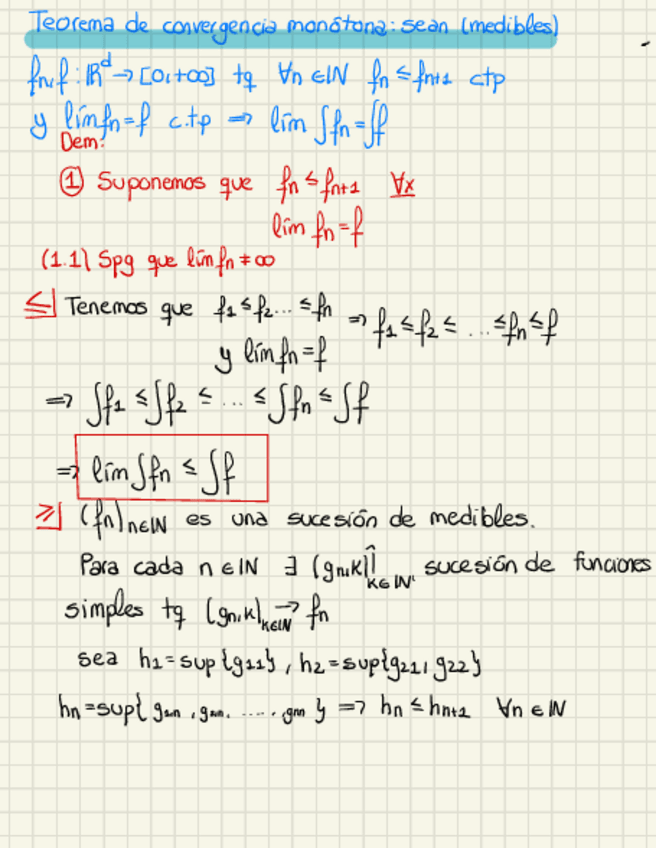 Teorema de convergencia monótona: sean (medibles)
fn,f : ℝᵈ → [0,+∞] tq ∀n ∈ ℕ fn ≤ fn+1 ctp
y lím fn = f c.t.p ⇒ lím ∫fn = ∫f
Dem:
① Suponemos que fn ≤ fn+1 ∀x
lím fn = f
(1.1) Spg que lím fn ≠ ∞
≤| Tenemos que f1 ≤ f2 ... ≤ fn ⇒ f1 ≤ f2 ≤ ... ≤ fn ≤ f
y lím fn = f
⇒ ∫f1 ≤ ∫f2 ≤ ... ≤ ∫fn ≤ ∫f
⇒ lím ∫fn ≤ ∫f
≥| (fn)n∈ℕ es una sucesión de medibles.
Para cada n ∈ ℕ ∃ (gn,k)↑k∈ℕ, sucesión de funciones
simples tq (gn,k)k∈ℕ → fn
sea h1 = sup{g11}, h2 = sup{g21, g22}
hn = sup{ , ..... , gnn } ⇒ hn ≤ hn+1 ∀n ∈ ℕ